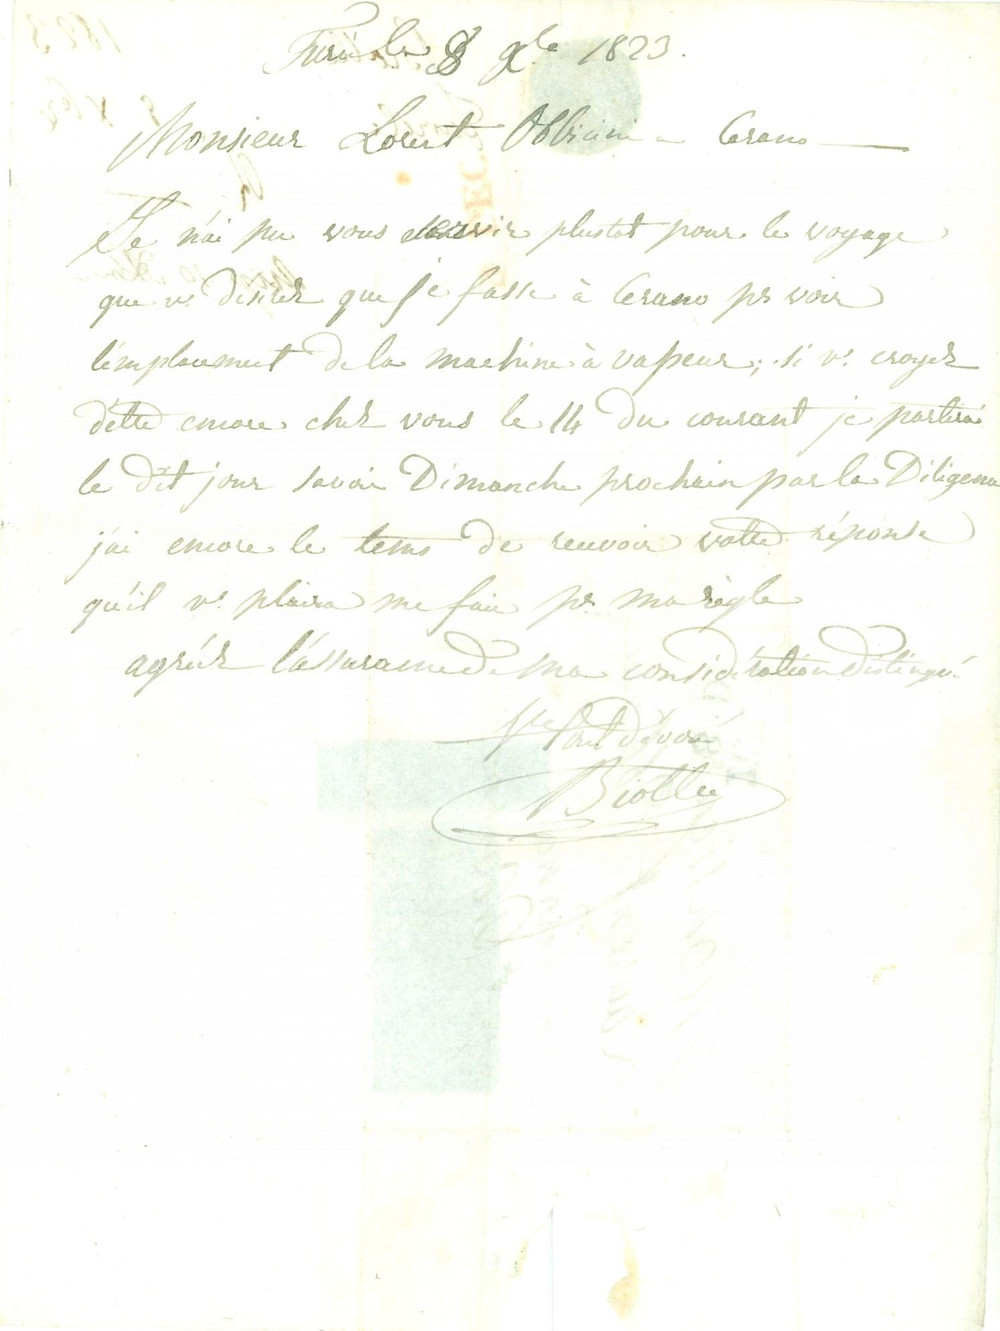 Turin le 8 Xbre 1823.
Monsieur Lorent Obbicini a Cerano
Je n'ai pu vous servir plustot pour le voyage
que vs. desirez que je fasse à Cerano pr voir
l'emplacement de la machine à vapeur; si vs. croyez
d'ettre encore chez vous le 14 du courant je partirai
le dit jour savoir Dimanche prochain par la Diligence
j'ai encore le tems de recevoir votre réponse
qu'il vs. plaira me faire pr. ma règle
agréez l'assurance de ma considération distingué
Biolley